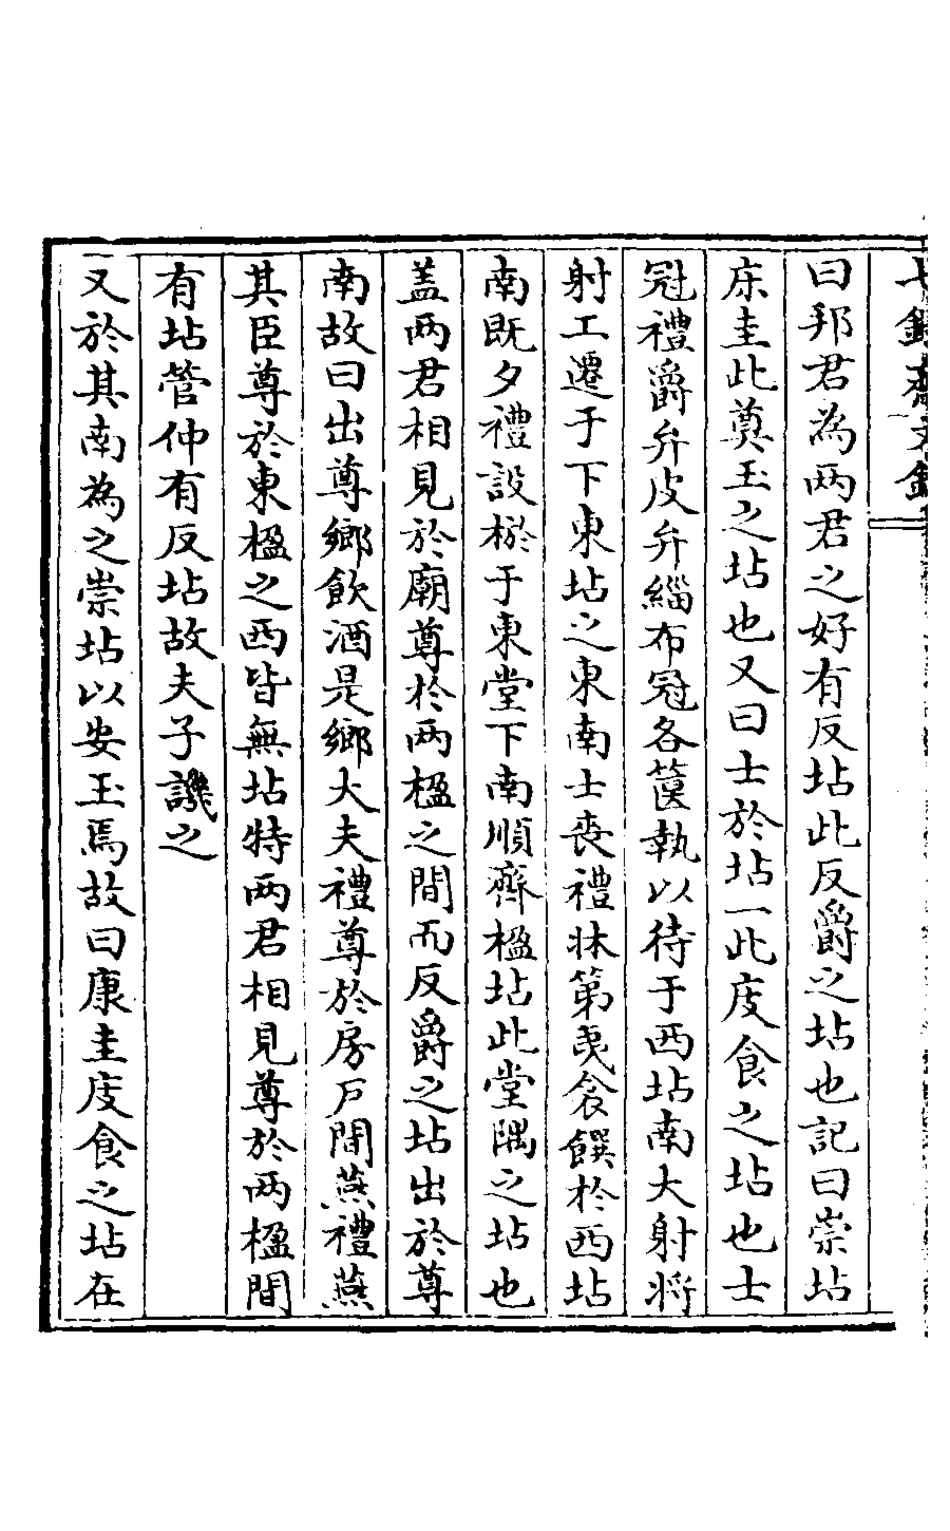 曰邦君為两君之好有反坫此反爵之坫也記曰崇坫
床圭此奠玉之坫也又曰士於坫一此庋食之坫也士
冠禮爵弁皮弁緇布冠各篋執以待于西坫南大射将
射工遷于下東坫之東南士喪禮牀第夷衾饌於西坫
南既夕禮設棜于東堂下南順齊楹坫此堂隅之坫也
盖两君相見於廟尊於两楹之間而反爵之坫出於尊
南故曰出尊鄉飲酒是鄉大夫禮尊於房戶間燕禮燕
其臣尊於東楹之西皆無坫特两君相見尊於两楹間
有坫管仲有反坫故夫子譏之
又於其南為之崇坫以安玉焉故曰康圭庋食之坫在